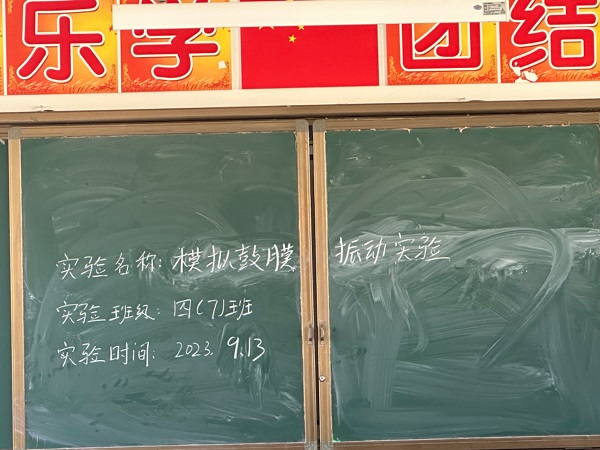 乐学 团结
实验名称: 模拟鼓膜振动实验
实验班级: 四(7)班
实验时间: 2023. 9.13